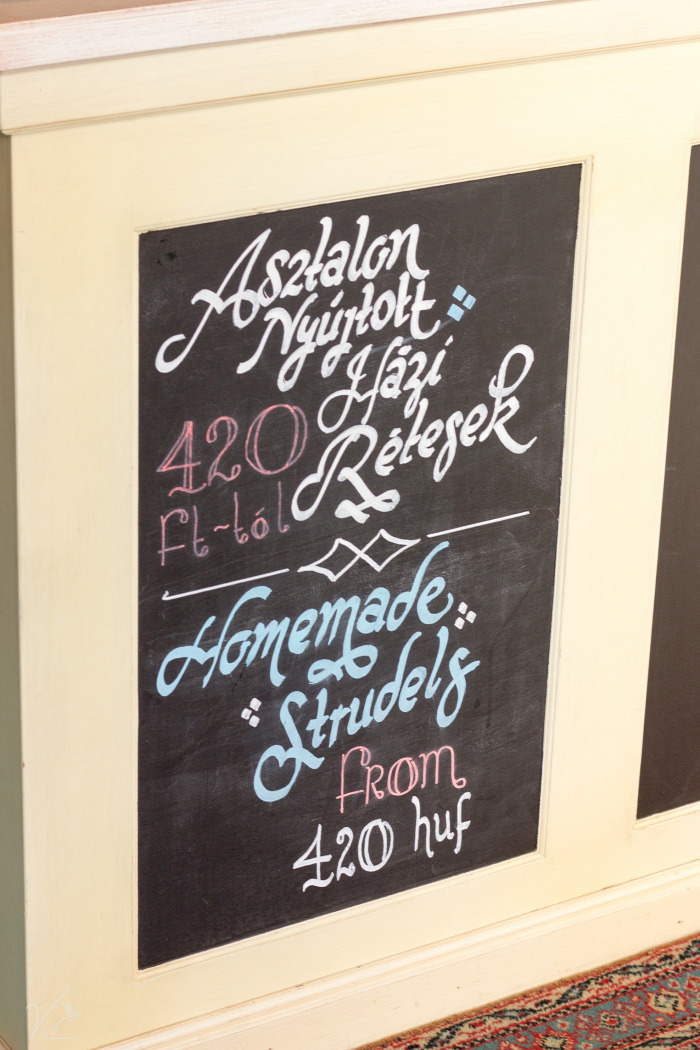 Asztalon
Nyújtott
Házi
Rétesek
420
Ft-tól
Homemade
Strudels
from
420 huf